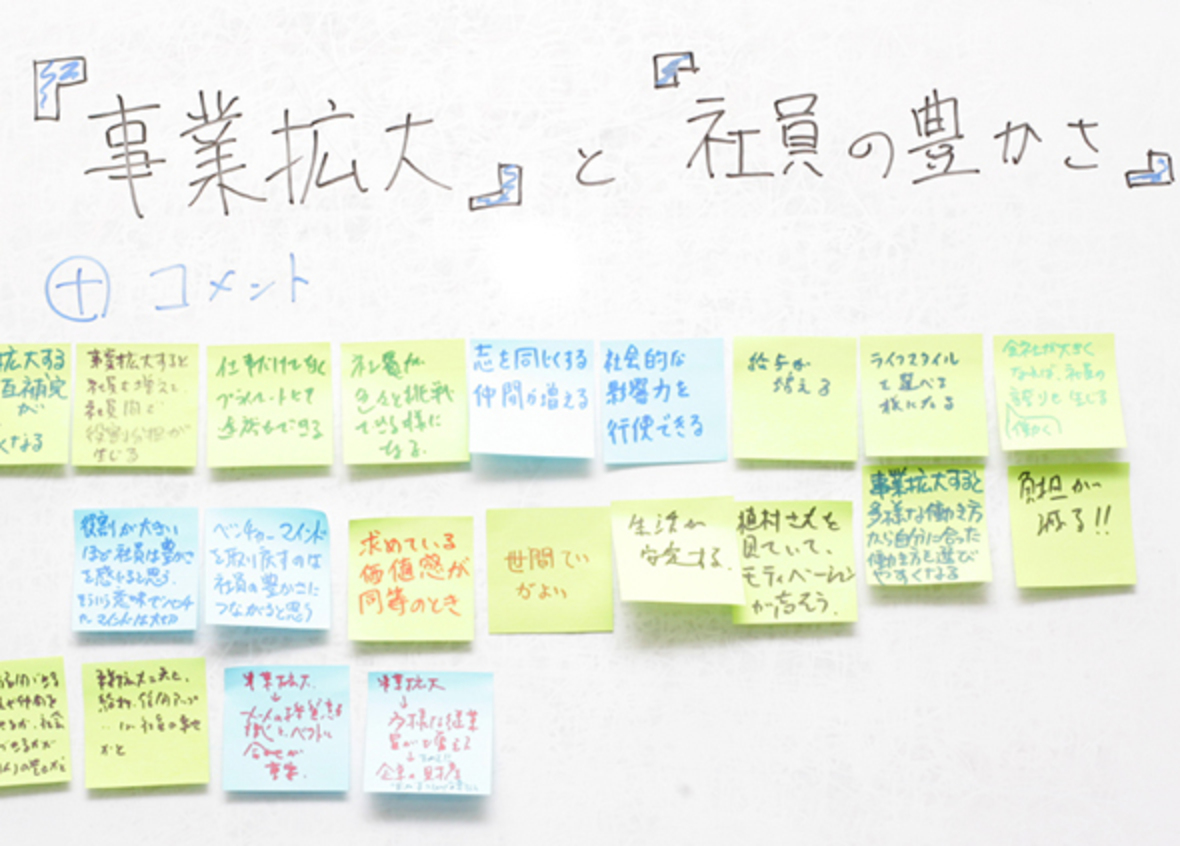 『事業拡大』と『社員の豊かさ』
⊕ コメント
拡大する
互補完
が
くなる
事業拡大すると
社員も増えて
社員間で
役割分担が
生じる
仕事だけでなく
プライベートでも
充実ができる
社員が
色々と挑戦
できる様に
なる。
志を同じくする
仲間が増える
社会的な
影響力を
行使できる
給与が
増える
ライフスタイル
を選べる
様になる
会社が大きく
なれば、社員の
誇りも生じる
(働く)
役割が大きい
ほど社員は豊かさ
を感じると思う。
そういう意味でベンチ
マインドは大切
ベンチャーマインド
を取り戻すのは
社員の豊かさに
つながると思う
求めている
価値感が
同等のとき
世間てい
がよい
生活が
安定する。
植村さんを
見ていて、
モティベーション
が高そう。
事業拡大すると
多様な働き方
から自分に合った
働き方を選び
やすくなる
負担が
減る!!
事業拡大
↓
事業。
事業拡大
↓
多様な従業
員が増える
↓
企業の財産